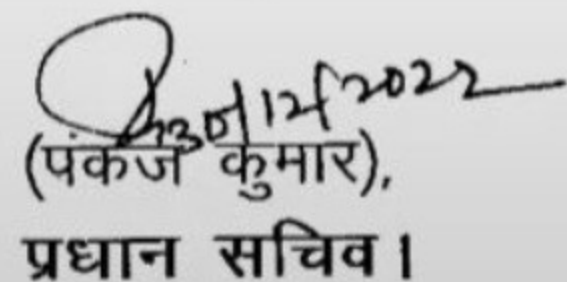 30/12/2022
(पंकज कुमार),
प्रधान सचिव।